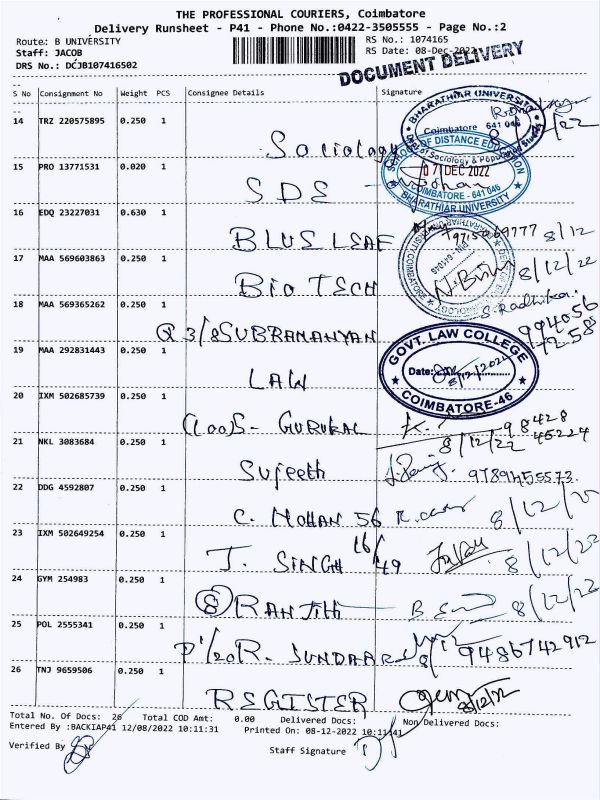 THE PROFESSIONAL COURIERS, Coimbatore
Delivery Runsheet - P41 - Phone No.:0422-3505555 - Page No.:2
Route: B UNIVERSITY
RS No.: 1074165
Staff: JACOB
RS Date: 08-Dec-2022
DRS No.: DCJB107416502
DOCUMENT DELIVERY
S No Consignment No Weight PCS Consignee Details Signature
14 TRZ 220575895 0.250 1
Sociology
BHARATHIAR UNIVERSITY
Coimbatore 641 046
Dept of Sociology & Population Studies
8/12/22
15 PRO 13771531 0.020 1
SDE
SCHOOL OF DISTANCE EDUCATION
07 DEC 2022
COIMBATORE - 641 046
BHARATHIAR UNIVERSITY
16 EDQ 23227031 0.630 1
BLUS LEAF
8/12
17 MAA 569603863 0.250 1
BIO TECH
8/12/22
18 MAA 569365262 0.250 1
Q 3/8 SUBRAMANYAN
S. Radhika.
994056
7258
19 MAA 292831443 0.250 1
LAW
GOVT. LAW COLLEGE
Date:
8/12/2022
COIMBATORE-46
20 IXM 502685739 0.250 1
GURUKAL
8/12/22
98428
45224
21 NKL 3083684 0.250 1
Sujeeth
9789455573
22 DDG 4592807 0.250 1
C. MOHAN 56
8/12/22
23 IXM 502649254 0.250 1
J. SINGH 16/49
8/12/22
24 GYM 254983 0.250 1
8 RANJITH
8/12/22
25 POL 2555341 0.250 1
P1/20 R. SUNDAR
9486742912
26 TNJ 9659506 0.250 1
REGISTER
8/12/22
Total No. Of Docs: 26 Total COD Amt: 0.00 Delivered Docs: Non Delivered Docs:
Entered By :BACKIAP41 12/08/2022 10:11:31 Printed On: 08-12-2022 10:11:41
Verified By
Staff Signature